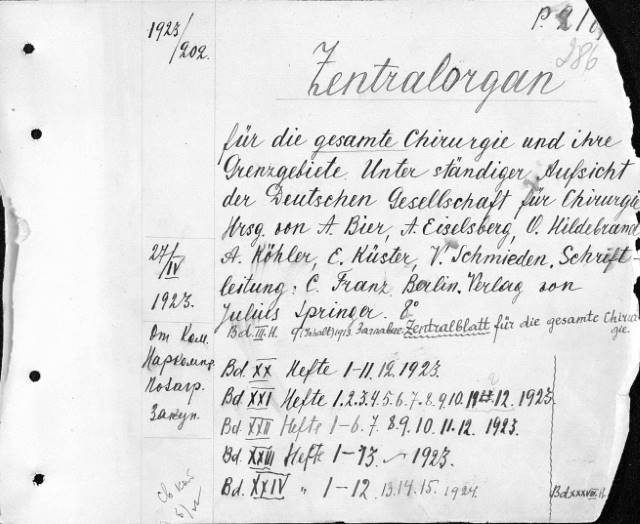 1923/202.
P. 210
286
Zentralorgan
für die gesamte Chirurgie und ihre
Grenzgebiete. Unter ständiger Aufsicht
der Deutschen Gesellschaft für Chirurgie
Hrsg. von A. Bier, A. Eiselsberg, O. Hildebrand
A. Köhler, E. Küster, V. Schmieden. Schrift-
leitung: C. Franz. Berlin. Verlag von
Julius Springer. 8°
27/IV
1923.
От Ком.
Наркомпр
Загр.
Закуп.
Bd. III. H. 9 (Inhalt) 1913. Заглавие: Zentralblatt für die gesamte Chirur
gie.
Bd. XX Hefte 1-11. 12. 1923.
Bd. XXI Hefte 1. 2. 3. 4. 5. 6. 7. 8. 9. 10. 11. 12. 1923.
Bd. XXII Hefte 1-6. 7. 8. 9. 10. 11. 12. 1923.
Bd. XXIII Hefte 1-13. 1923.
Bd. XXIV " 1-12. 13. 14. 15. 1924.
Bd. XXXVIII. H.